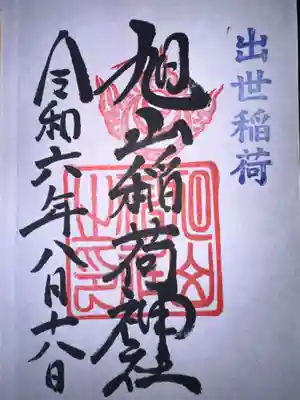 出世稲荷
旭山稲荷神社
令和六年八月十八日